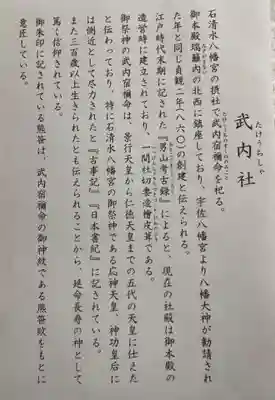 たけうちしゃ
武内社
石清水八幡宮の摂社で武内宿禰命を祀る。
御本殿瑞籬内の北西に鎮座しており、宇佐八幡宮より八幡大神が勧請され
た年と同じ貞観二年(八六〇)の創建と伝えられる。
江戸時代末期に記された『男山考古録』によると、現在の社殿は御本殿の
造営時に建立されており、一間社切妻造檜皮葺である。
御祭神の武内宿禰命は、景行天皇から仁徳天皇までの五代の天皇に仕えた
と伝わっており、特に石清水八幡宮の御祭神である応神天皇、神功皇后に
は側近として尽力されたと『古事記』『日本書紀』に記されている。
また三百歳以上生きられたとも伝えられることから、延命長寿の神として
篤く信仰されている。
御朱印に記されている熊笹は、武内宿禰命の御神紋である熊笹紋をもとに
意匠している。